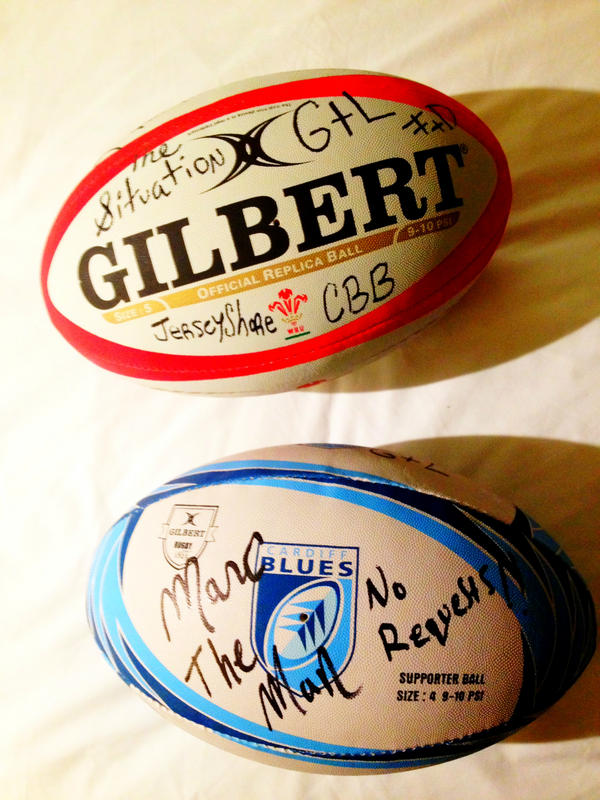 The
Situation
G+L
GILBERT®
SIZE : 5
OFFICIAL REPLICA BALL
9-10 PSI
JerseyShore
WRU
CBB
G+L
GILBERT
RUGBY
CARDIFF
BLUES
Marc
The
Man
No
Requests!!
SUPPORTER BALL
SIZE : 4 9-10 PSI